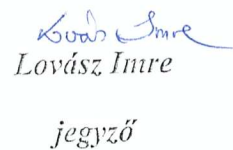 Lovász Imre
Lovász Imre
jegyző